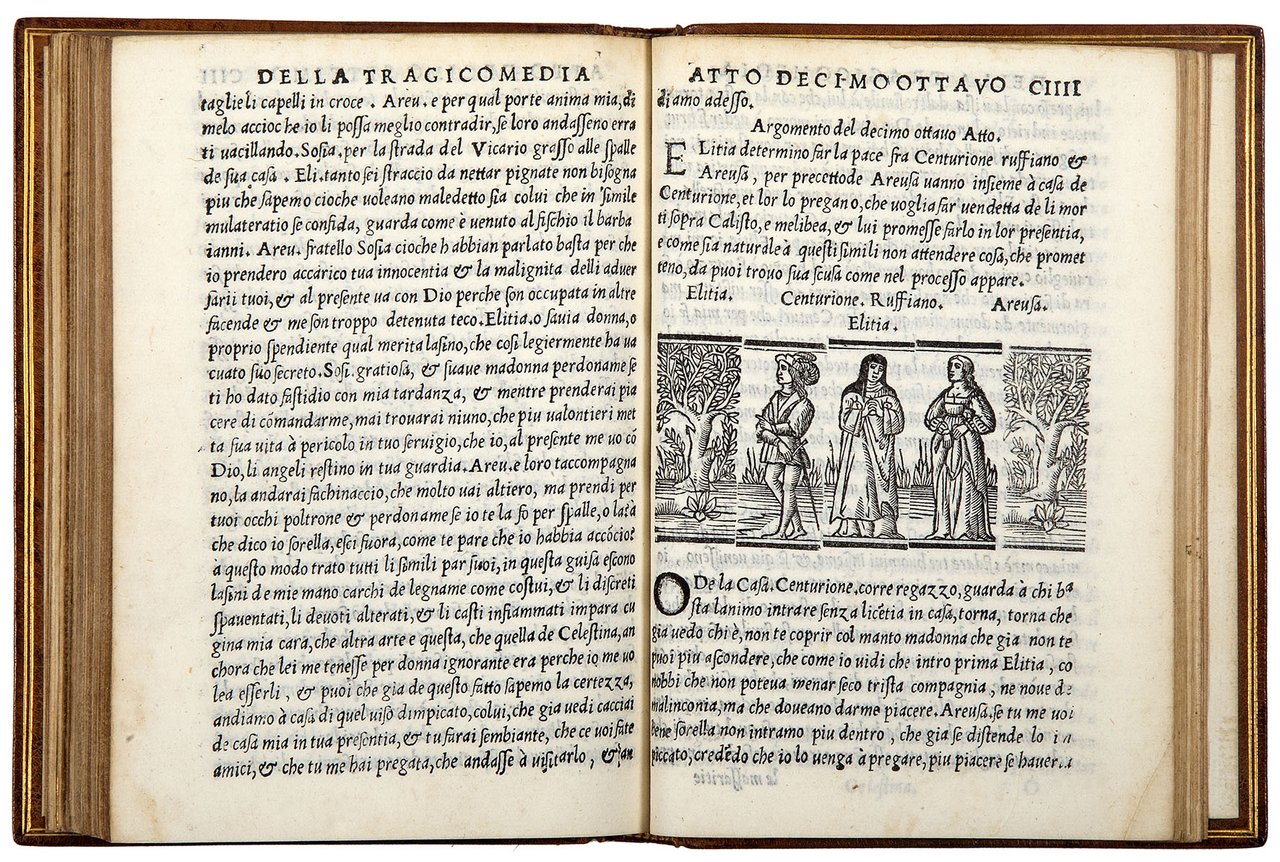 DELLA TRAGICOMEDIA
taglie li capelli in croce. Areu. e per qual porte anima mia, di
melo accioche io li possa meglio contradir, se loro andasseno erra
ti uacillando. Sosia. per la strada del Vicario grasso alle spalle
de sua casa. Eli. tanto sei straccio da nettar pignate non bisogna
piu che sapemo cioche uoleano maledetto sia colui che in simile
mulateratio se confida, guarda come è uenuto al fischio il barba
ianni. Areu. fratello Sosia cioche habbian parlato basta per che
io prendero accarico tua innocentia & la malignita delli aduer
sarii tuoi, & al presente ua con Dio perche son occupata in altre
facende & me son troppo detenuta teco. Elitia. o sauia donna, o
proprio spendiente qual merita lasino, che cosi legiermente ha ua
cuato suo secreto. Sosi. gratiosa, & suaue madonna perdoname se
ti ho dato fastidio con mia tardanza, & mentre prenderai pia
cere di cōmandarme, mai trouarai niuno, che piu ualontieri met
ta sua uita à pericolo in tuo seruigio, che io, al presente me uo cō
Dio, li angeli restino in tua guardia. Areu. e loro taccompagna
no, la andarai fachinaccio, che molto uai altiero, ma prendi per
tuoi occhi poltrone & perdoname se io te la fo per spalle, o la à
che dico io sorella, esci fuora, come te pare che io habbia accōcio
à questo modo trato tutti li simili par suoi, in questa guisa escono
lasini de mie mano carchi de legname come costui, & li discreti
spauentati, li deuoti alterati, & li casti infiammati impara cu
gina mia cara, che altra arte e questa, che quella de Celestina, an
chora che lei me tenesse per donna ignorante era perche io me uo
lea esserli, & puoi che gia de questo fatto sapemo la certezza,
andiamo à casa di quel uiso dimpicato, colui, che gia uedi cacciai
de casa mia in tua presentia, & tu farai sembiante, che ce uoi fate
amici, & che tu me hai pregata, che andasse à uisitarlo, & an
ATTO DECIMOOTTAVO CIIII
di amo adesso.
Argomento del decimo ottauo Atto.
ELitia determino far la pace fra Centurione ruffiano &
Areusa, per precettode Areusa uanno insieme à casa de
Centurione, et lor lo pregano, che uoglia far uendetta de li mor
ti sopra Calisto, e melibea, & lui promesse farlo in lor presentia,
e come sia naturale à questi simili non attendere cosa, che promet
teno, da puoi trouo sua scusa come nel processo appare.
Elitia. Centurione. Ruffiano. Areusa.
Elitia.
ODe la Casa. Centurione. corre regazzo, guarda à chi ba
sta lanimo intrare senza licētia in casa, torna, torna che
gia uedo chi è, non te coprir col manto madonna che gia non te
puoi piu ascondere, che come io uidi che intro prima Elitia, co
nobbi che non poteua menar seco trista compagnia, ne noue de
malinconia, ma che doueano darme piacere. Areusa. se tu me uoi
bene sorella non intramo piu dentro, che gia se distende lo in
piccato, credēdo che io lo uenga à pregare, piu piacere se hauer